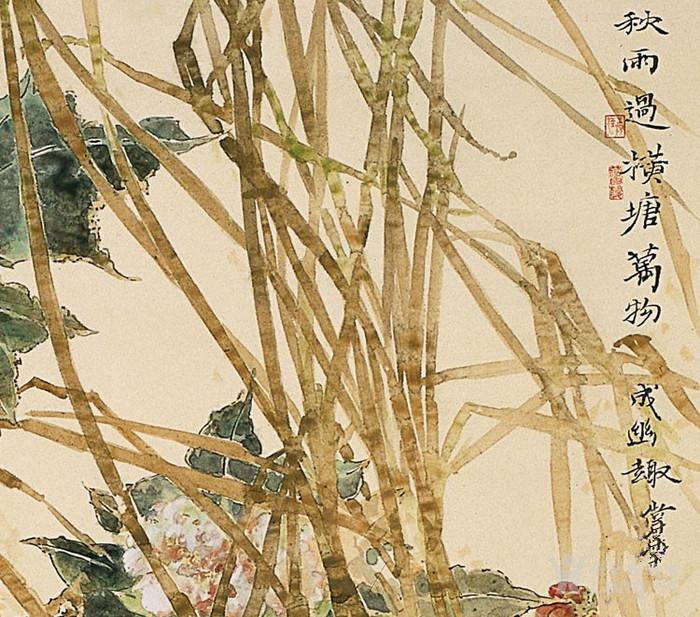 秋雨過橫塘萬物成幽趣